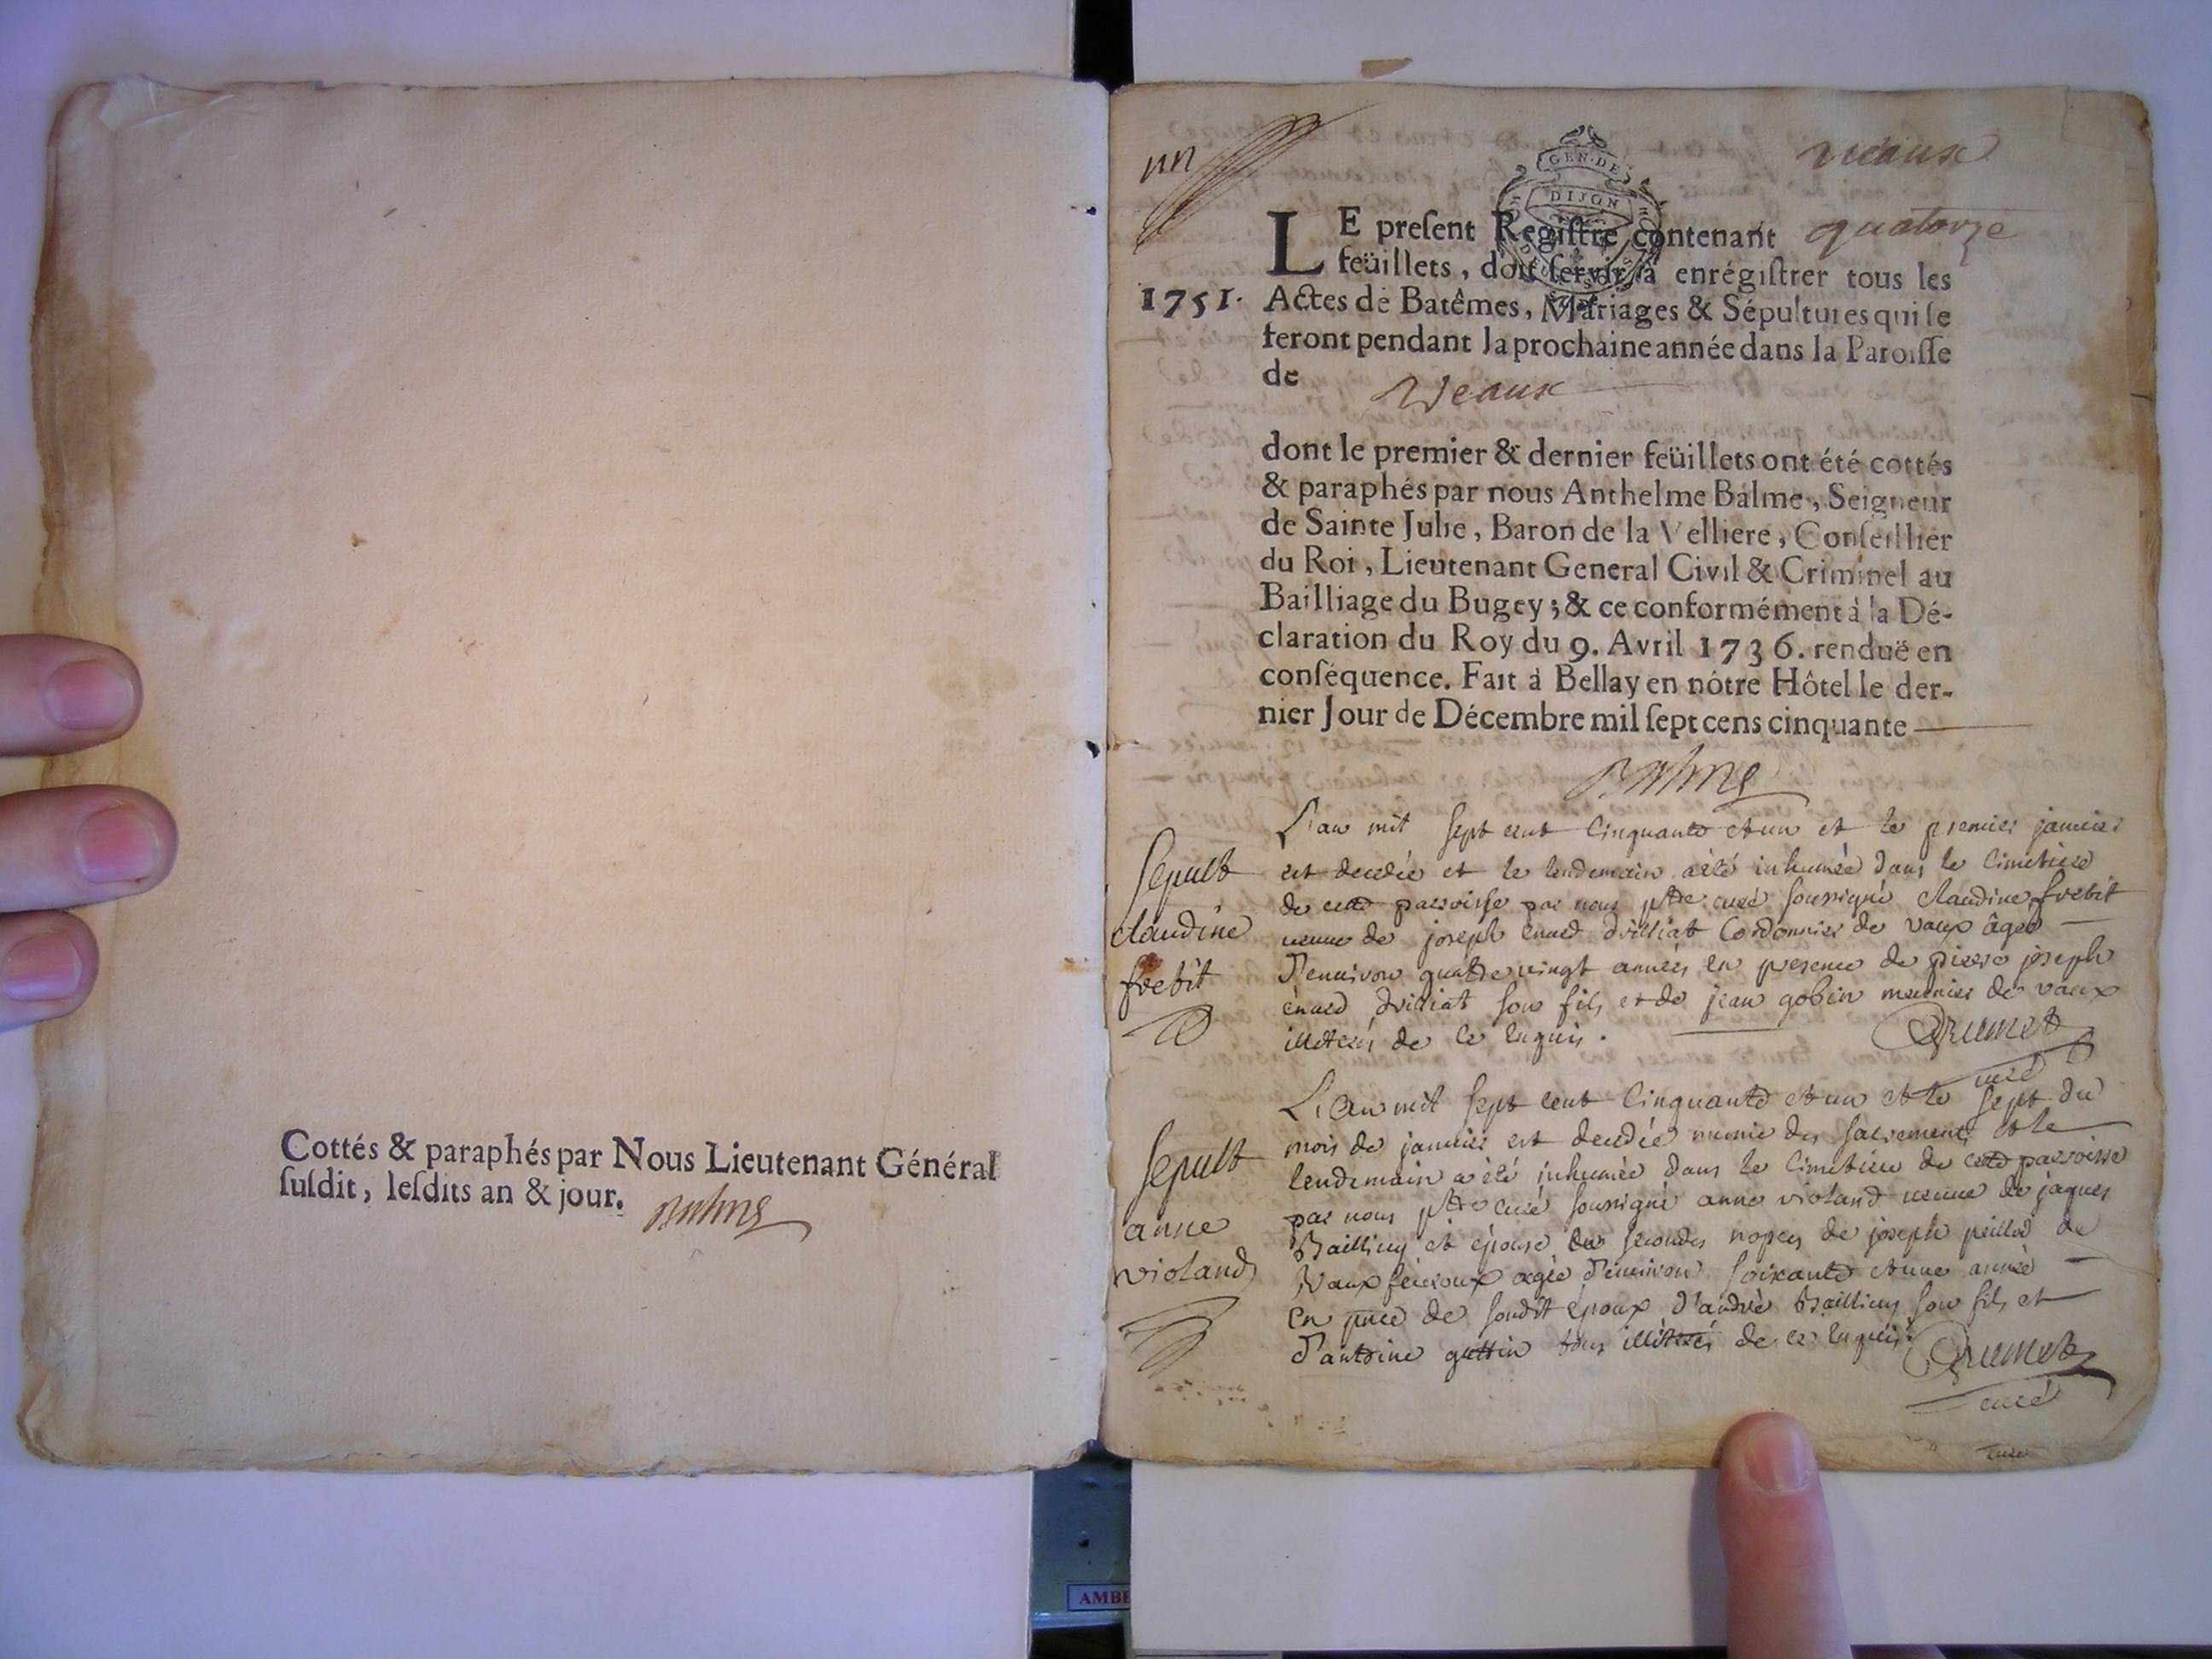 Cottés & paraphés par Nous Lieutenant Général
ſuſdit, leſdits an & jour.
Balme
un
GEN·DE
DIJON
veaux
LE preſent Regiſtre contenant quatorze
feüillets, doit ſervir à enrégiſtrer tous les
1751. Actes de Batêmes, Mariages & Sépultures qui ſe
feront pendant la prochaine année dans la Paroiſſe
de Veaux
dont le premier & dernier feüillets ont été cottés
& paraphés par nous Anthelme Balme, Seigneur
de Sainte Julie, Baron de la Velliere, Conſeillier
du Roi, Lieutenant General Civil & Criminel au
Bailliage du Bugey; & ce conformément à la Dé-
claration du Roy du 9. Avril 1736. renduë en
conſéquence. Fait à Bellay en nôtre Hôtel le der-
nier Jour de Décembre mil ſept cens cinquante
Balme
Sepult
claudine
frebit
L'an mil sept cent cinquante et un et le premier janvier
est decedée et le lendemain a été inhumée dans le cimetiere
de cette parroisse par nous ptre curé soussigné claudine frebit
veuve de joseph cordonnier de vaux âgée
d'environ quatre vingt années en presence de pierre joseph
son fils et de jean gobin meunier de vaux
illeterés de ce enquis.
Brumet
curé
Sepult
anne
violand
L'an mil sept cent cinquante et un et le sept du
mois de janvier est decedée munie des sacrements et le
lendemain a été inhumée dans le cimetiere de cette parroisse
par nous ptre curé soussigné anne violand veuve de jaques
Bailliuy et épouse en secondes nopces de joseph peillod de
Vaux agée d'environ soixante et une année
en pnce de sondit epoux d'andré Bailliuy son fils et
d'antoine guttin tous illiterés de ce enquis.
Brumet
curé